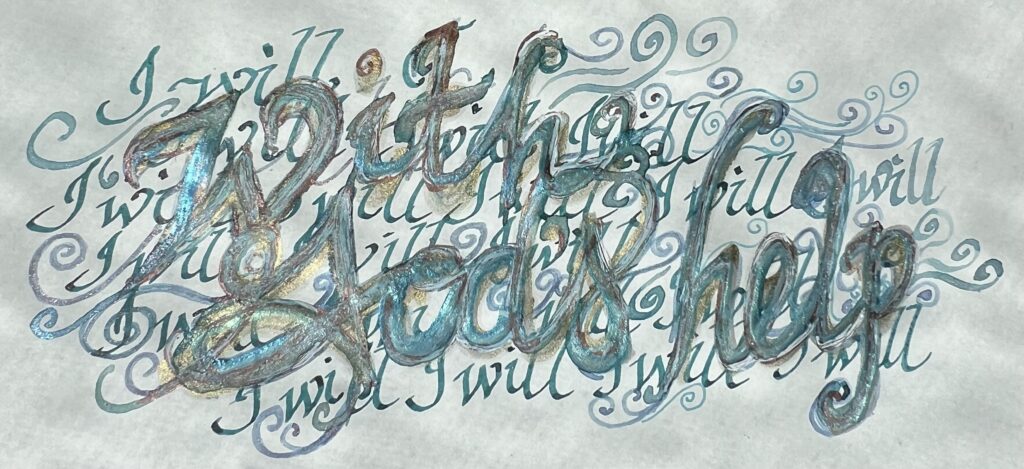 I will
I will I will
With
I will I will I will I will
God's help
I will I will I will
I will
I will I will I will I will